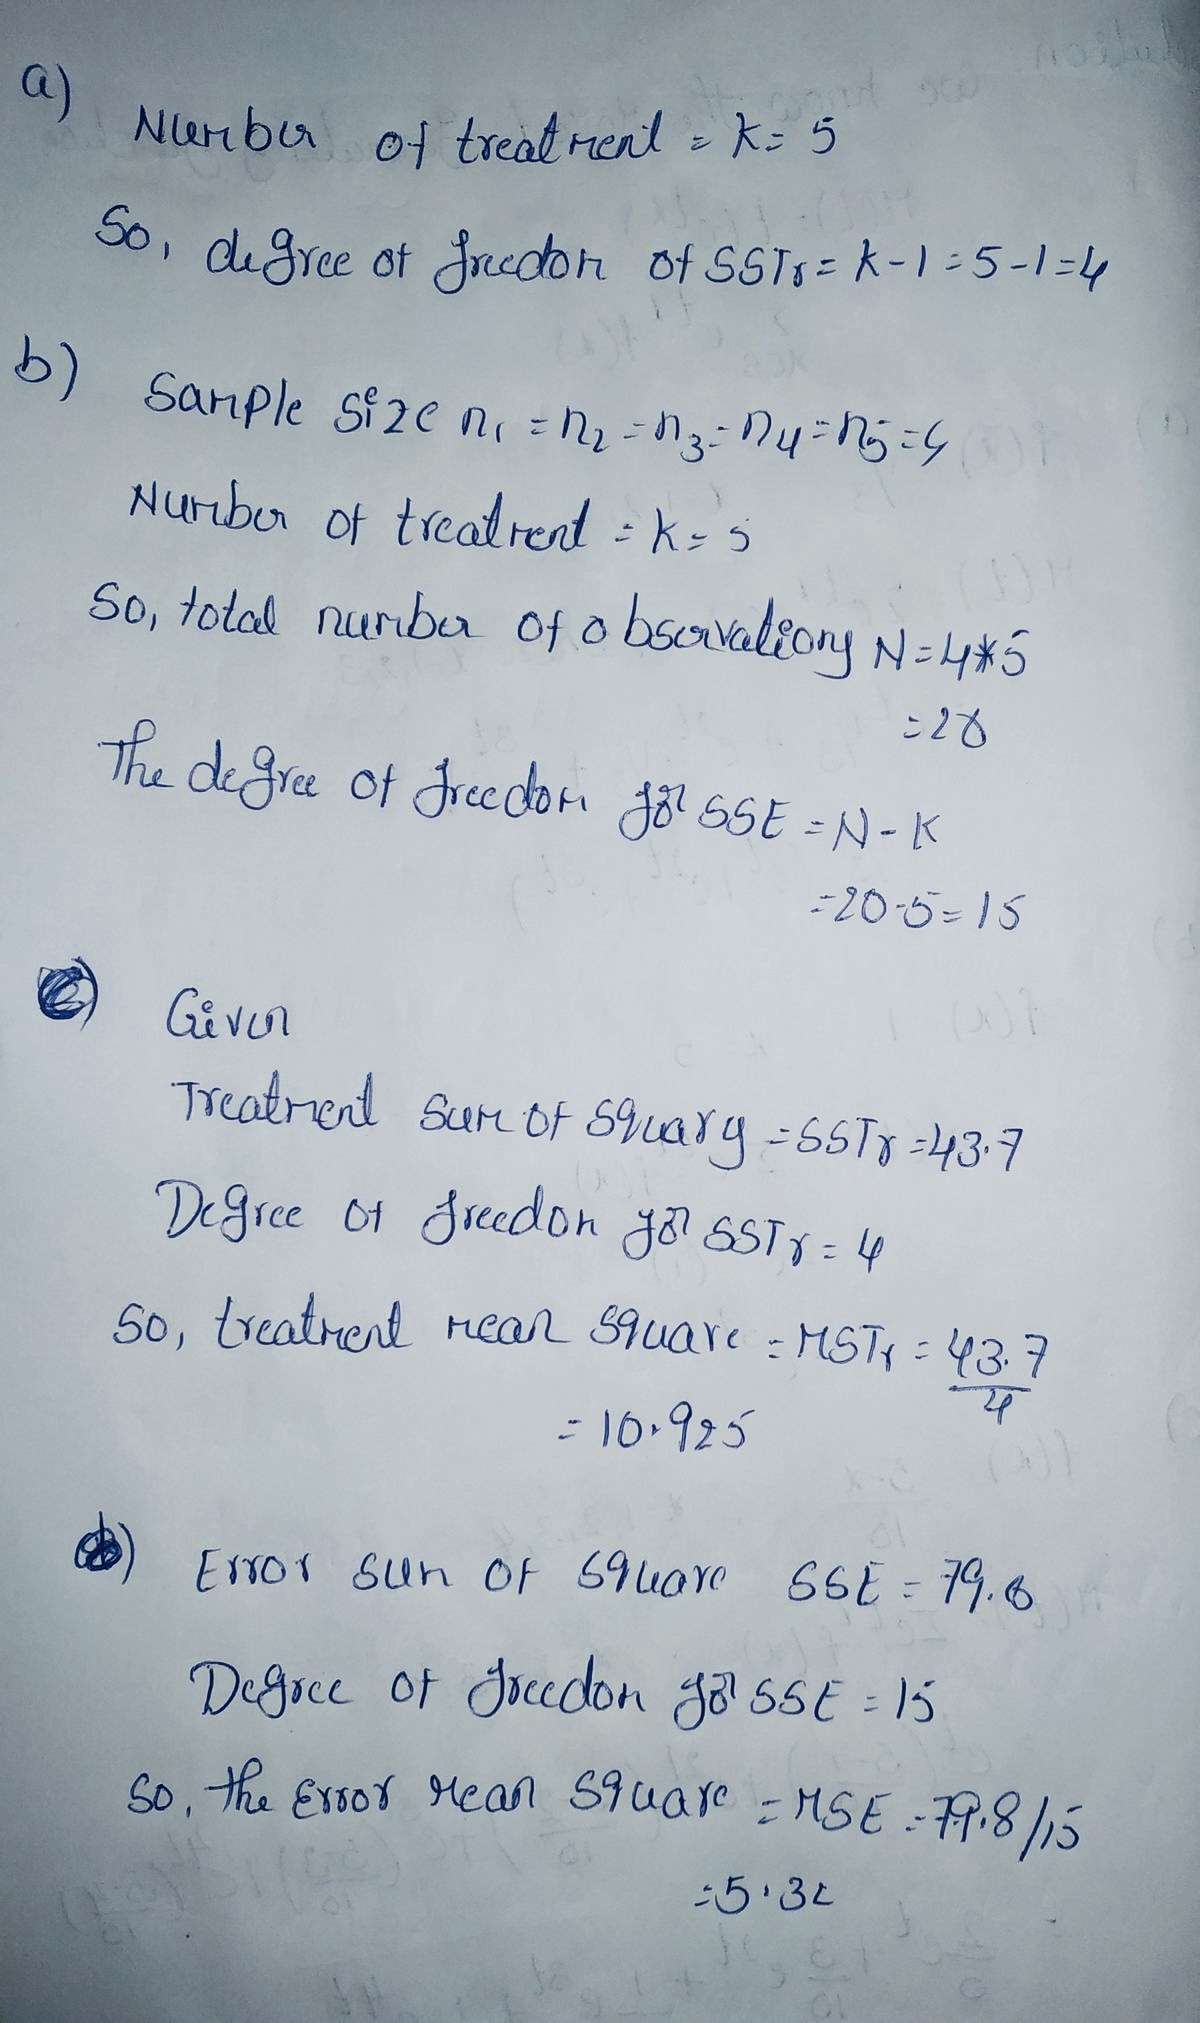 a)
Number of treatment = k = 5
So, degree of freedom of SSTr = k-1 = 5-1 = 4
b)
Sample size n₁ = n₂ = n₃ = n₄ = n₅ = 4
Number of treatment = k = 5
So, total number of observations N = 4*5
= 20
The degree of freedom for SSE = N-K
= 20-5 = 15
c) Given
Treatment sum of squares = SSTr = 43.7
Degree of freedom for SSTr = 4
So, treatment mean square = MSTr = 43.7/4
= 10.925
d) Error sum of square SSE = 79.8
Degree of freedom for SSE = 15
So, the Error mean square = MSE = 79.8/15
= 5.32